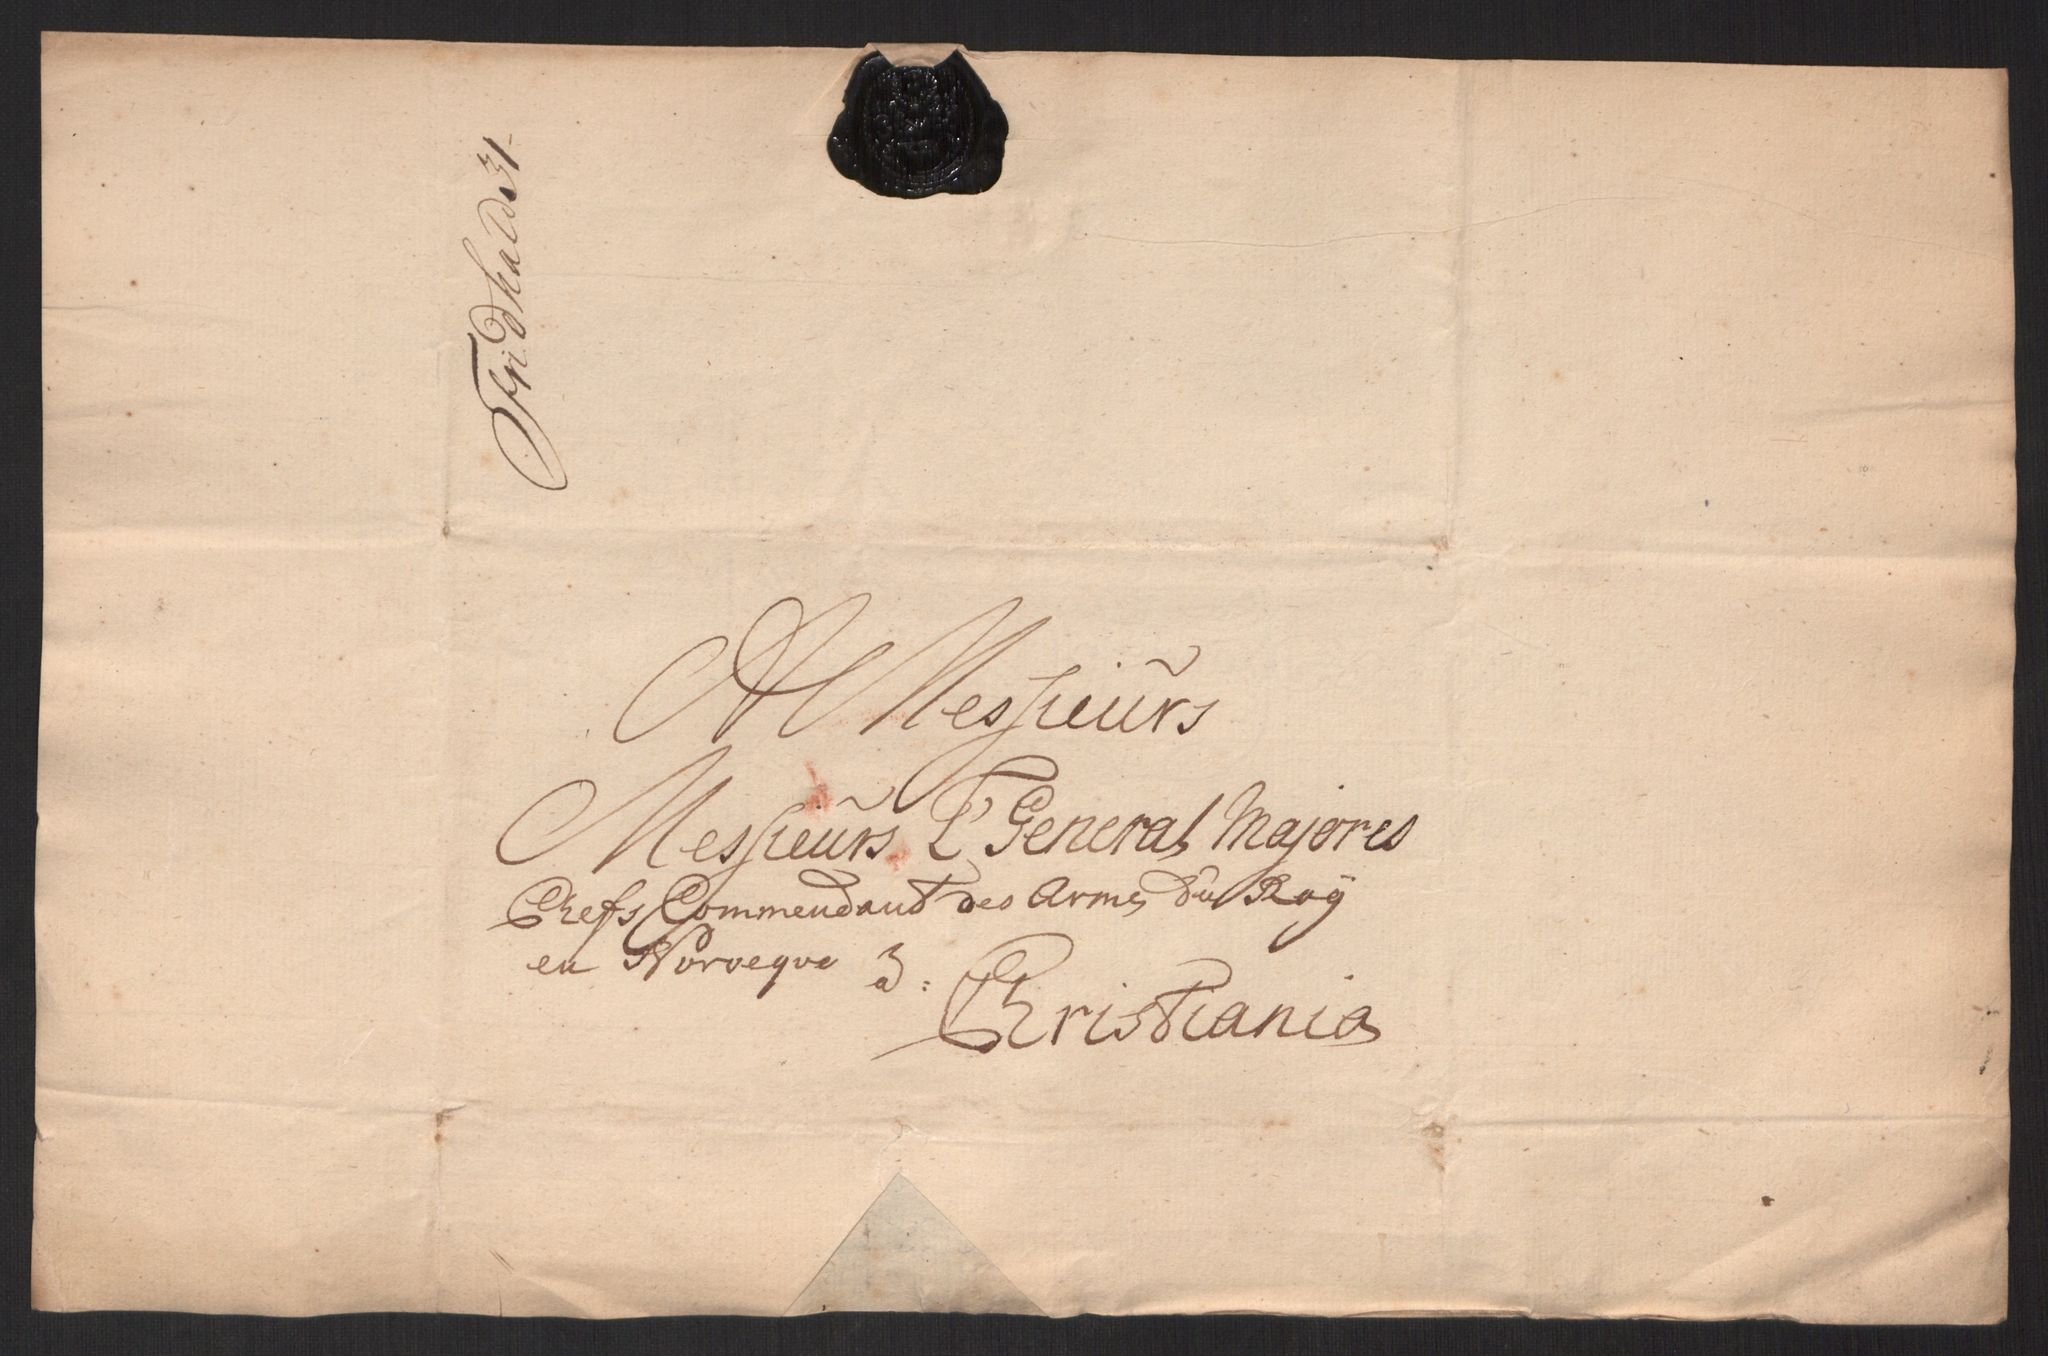 Fridhald 31
A Messieurs
Messieurs L' General Majores
Chefs Commendant des Arme du Roÿ
en Norvegve
a:
Christiania